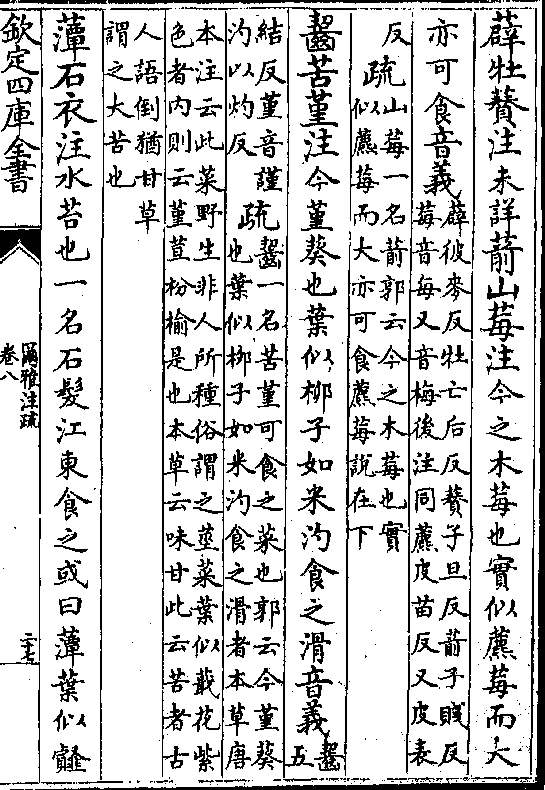 薜牡䕺注未詳葥山莓注今之木莓也實似藨莓而大
亦可食音義薜彼麥反牡亡后反䕺子旦反葥子賤反
莓音每又音梅後注同藨皮苗反又皮表
反疏山莓一名葥郭云今之木莓也實
似藨莓而大亦可食藨莓說在下
齧苦堇注今堇葵也葉似栁子如米汋食之滑音義齧
五
結反堇音謹
汋以灼反疏齧一名苦堇可食之菜也郭云今堇葵
也葉似栁子如米汋食之滑者本草唐
本注云此菜野生非人所種俗謂之堇菜葉似蕺花紫
色者内則云堇荁枌榆是也本草云味甘此云苦者古
人語倒猶甘草
謂之大苦也
藫石衣注水苔也一名石髮江東食之或曰藫葉似䪥
欽定四庫全書
爾雅注疏
卷八
二十七